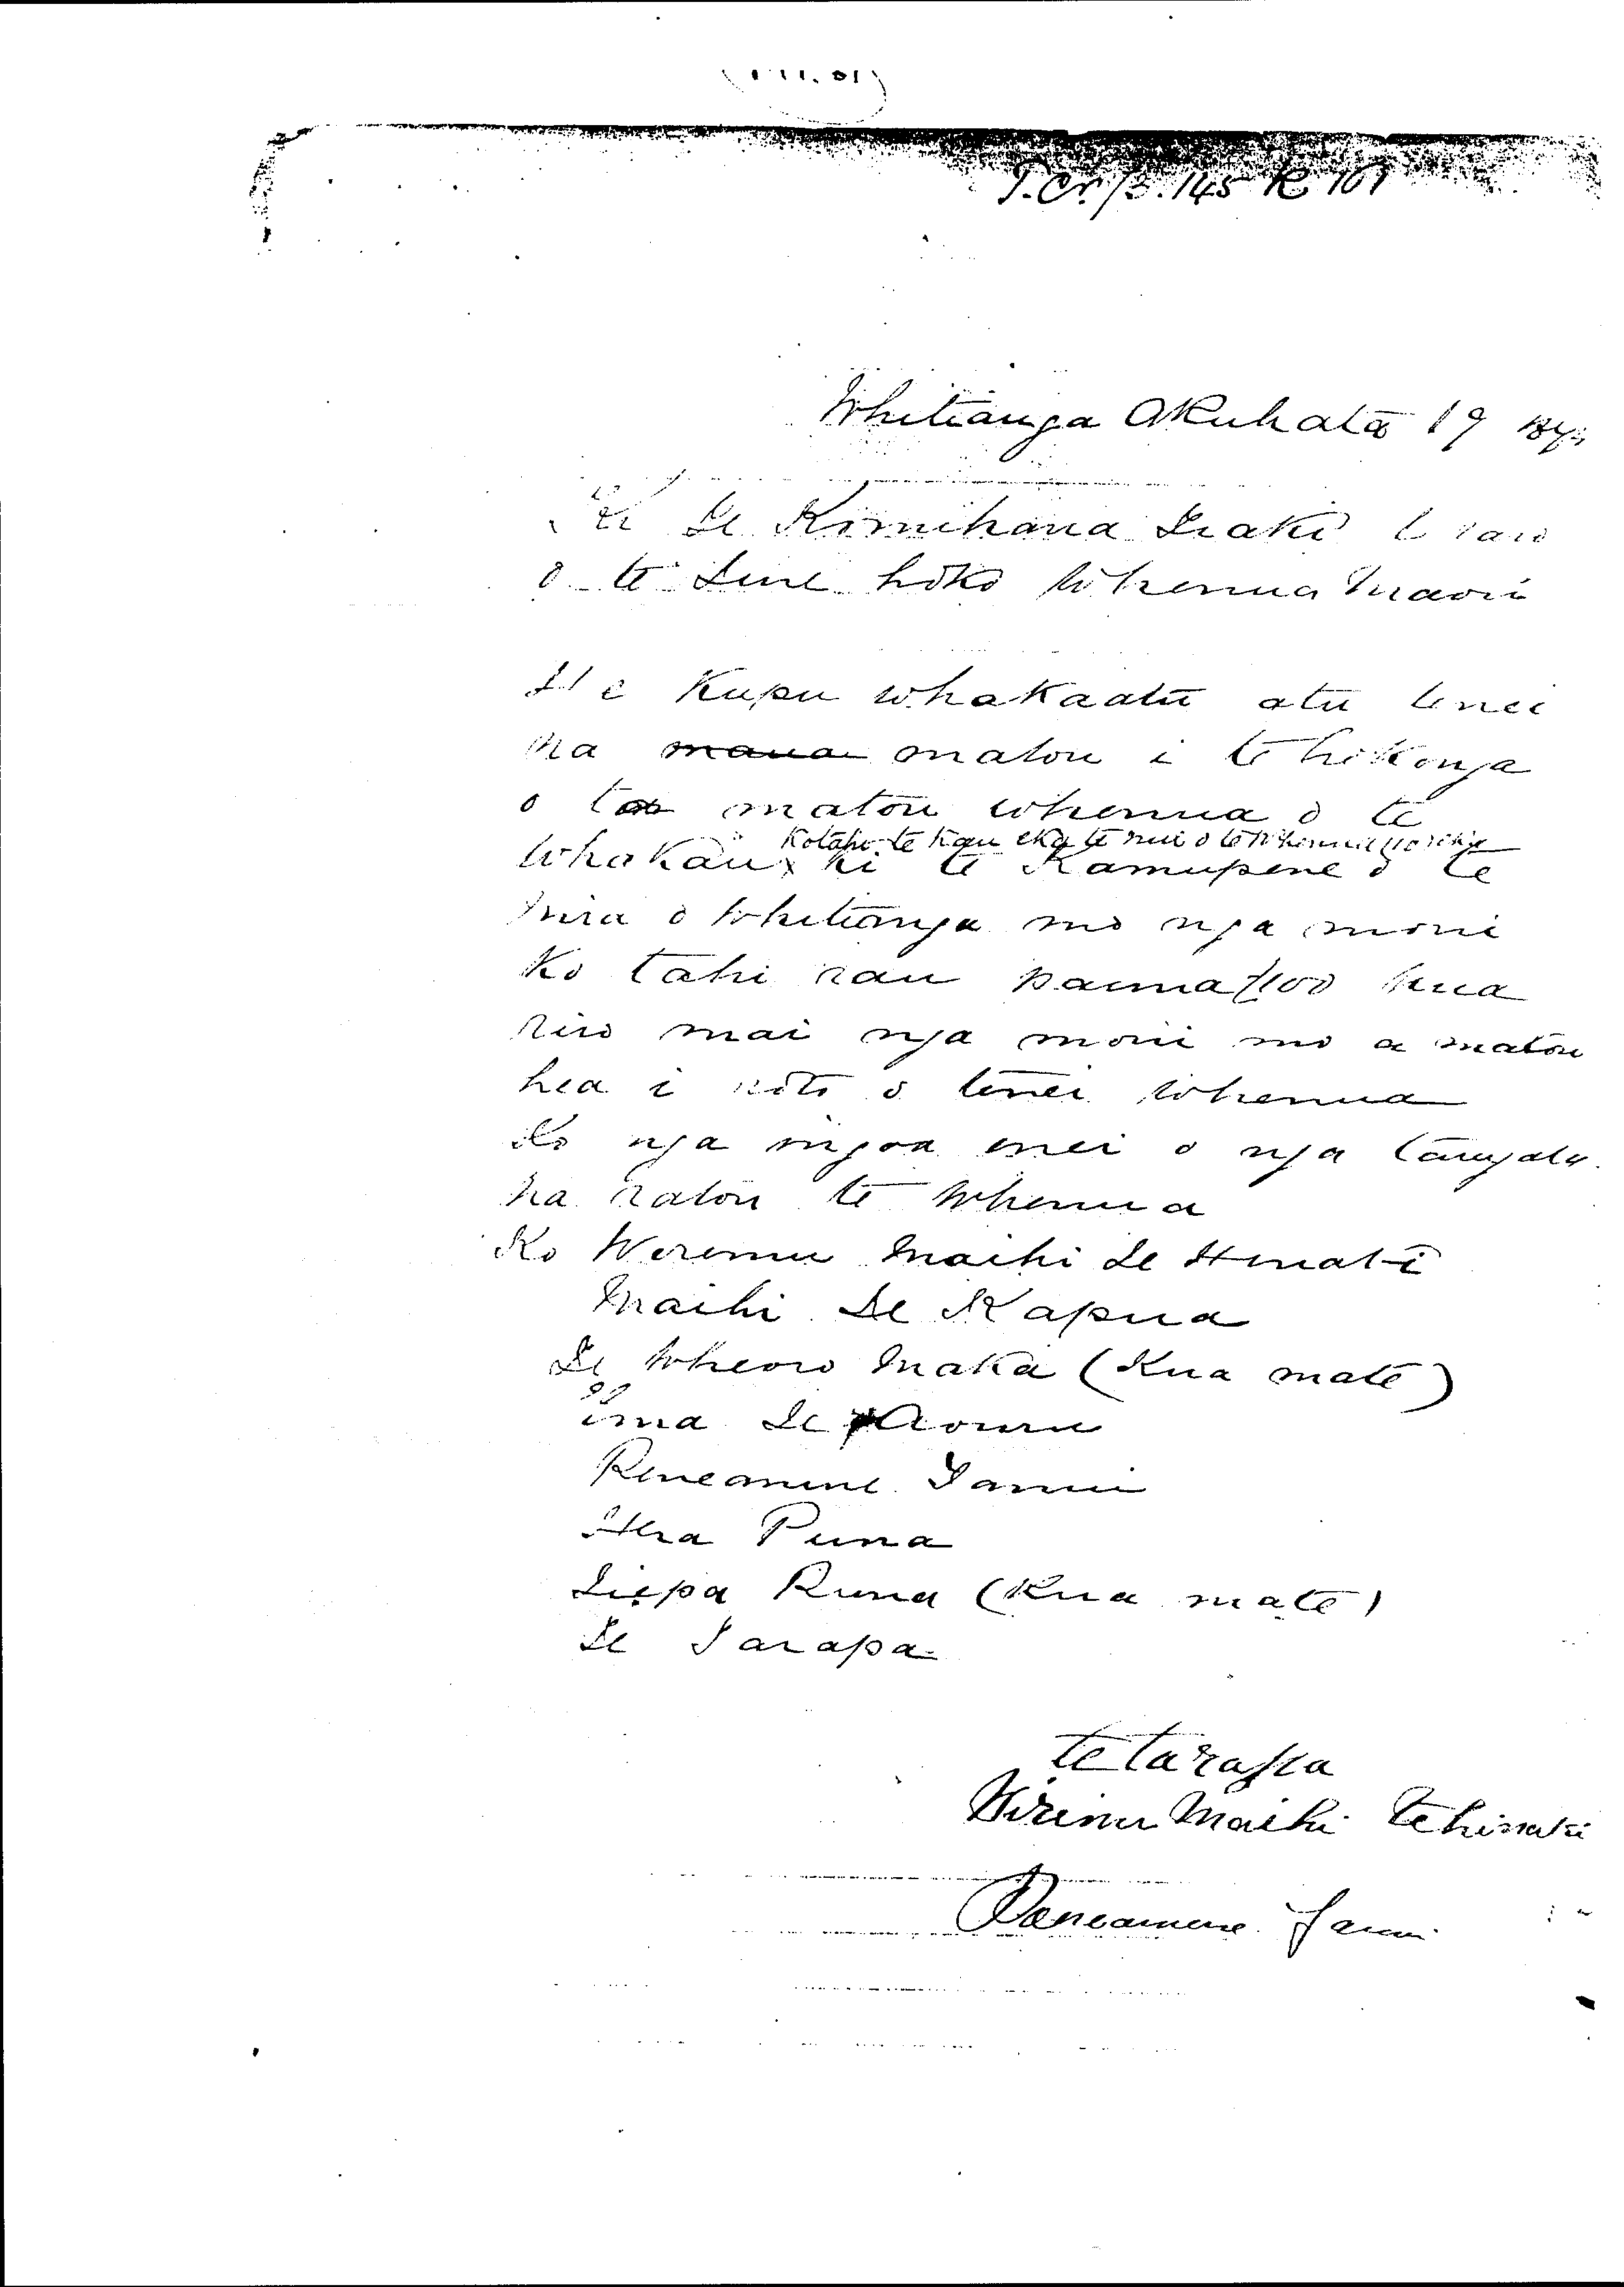 T.Cr. 13.145 R 161
Whitianga Akuhata 19
Ki Te Komihana Tiaki
o te Ture hoko whenua Maori
He Kupu whakaatu atu tenei
na mana matou i te hokonga
o ta matou whenua o te
Kotahi te kau eka te nui o te whenua
Whakau x ki te Kamupene o te
Mira o Whitianga mo nga moni
Ko tahi rau pauna £100 kua
riro mai nga moni mo a matou
hea i roto o tenei whenua
Ko nga ingoa enei o nga tangata
na ratou te whenua
Ko Weremu Maihi Te Hinaki
Maihi Te Kapua
Te Wheoro Maka (Kua mate)
Ema Te Aouru
Reneamene Tanui
Hera Puna
Liepa Runa (Kua mate)
Te Tarapa
te tarapa
Wiremu Maihi te hinaki
Reneamene Tanui